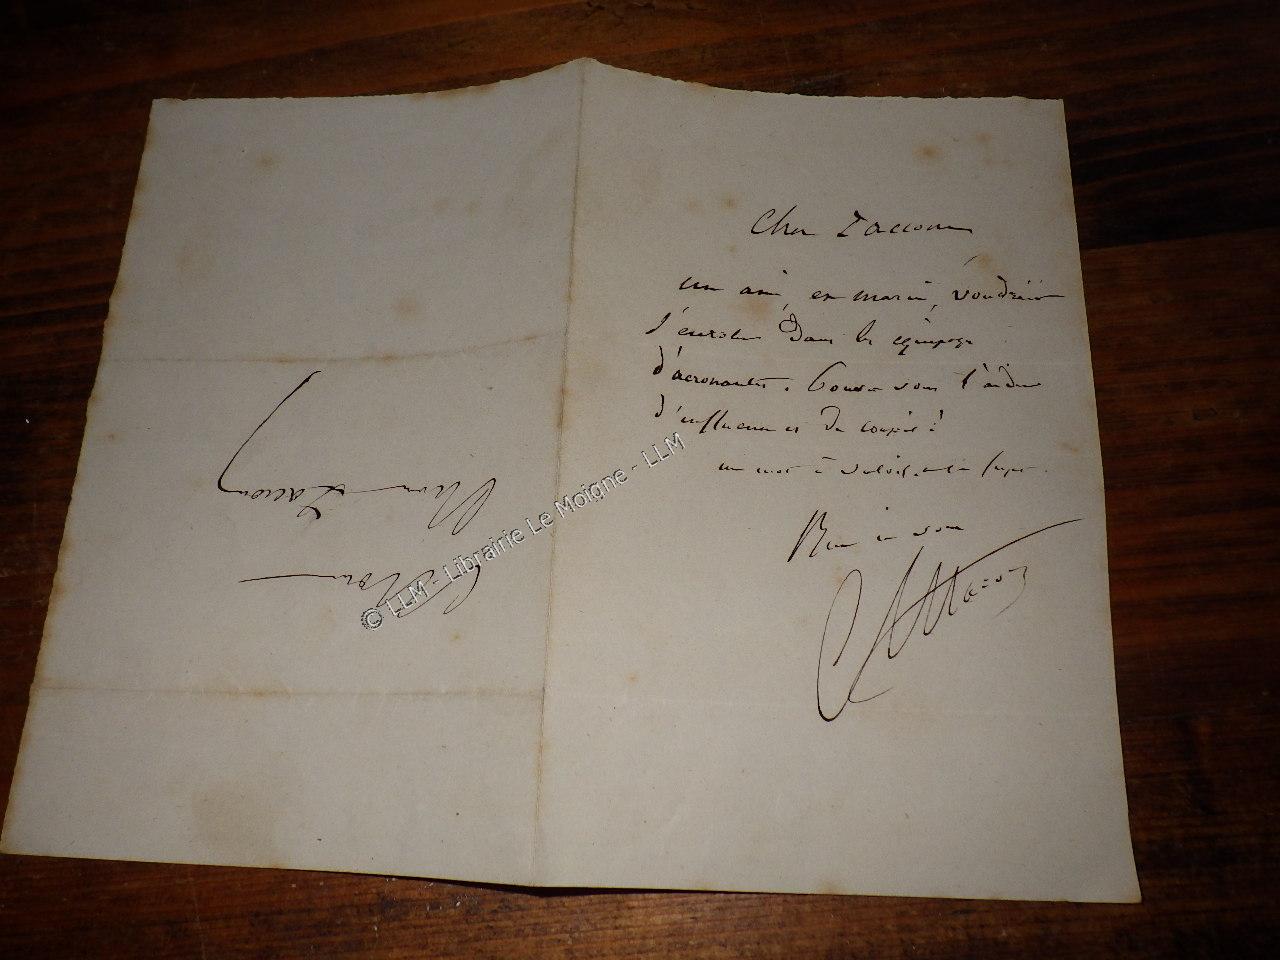 Cher Zaccone
un ami, ex marin, voudrait
s'enroler dans les équipages
d'aeronautes. Pouvez vous l'aider
d'influence et de conseil?
un mot à
Bien à vous
Monsieur
Pierre Zaccone
© LLM - Librairie Le Moigne - LLM